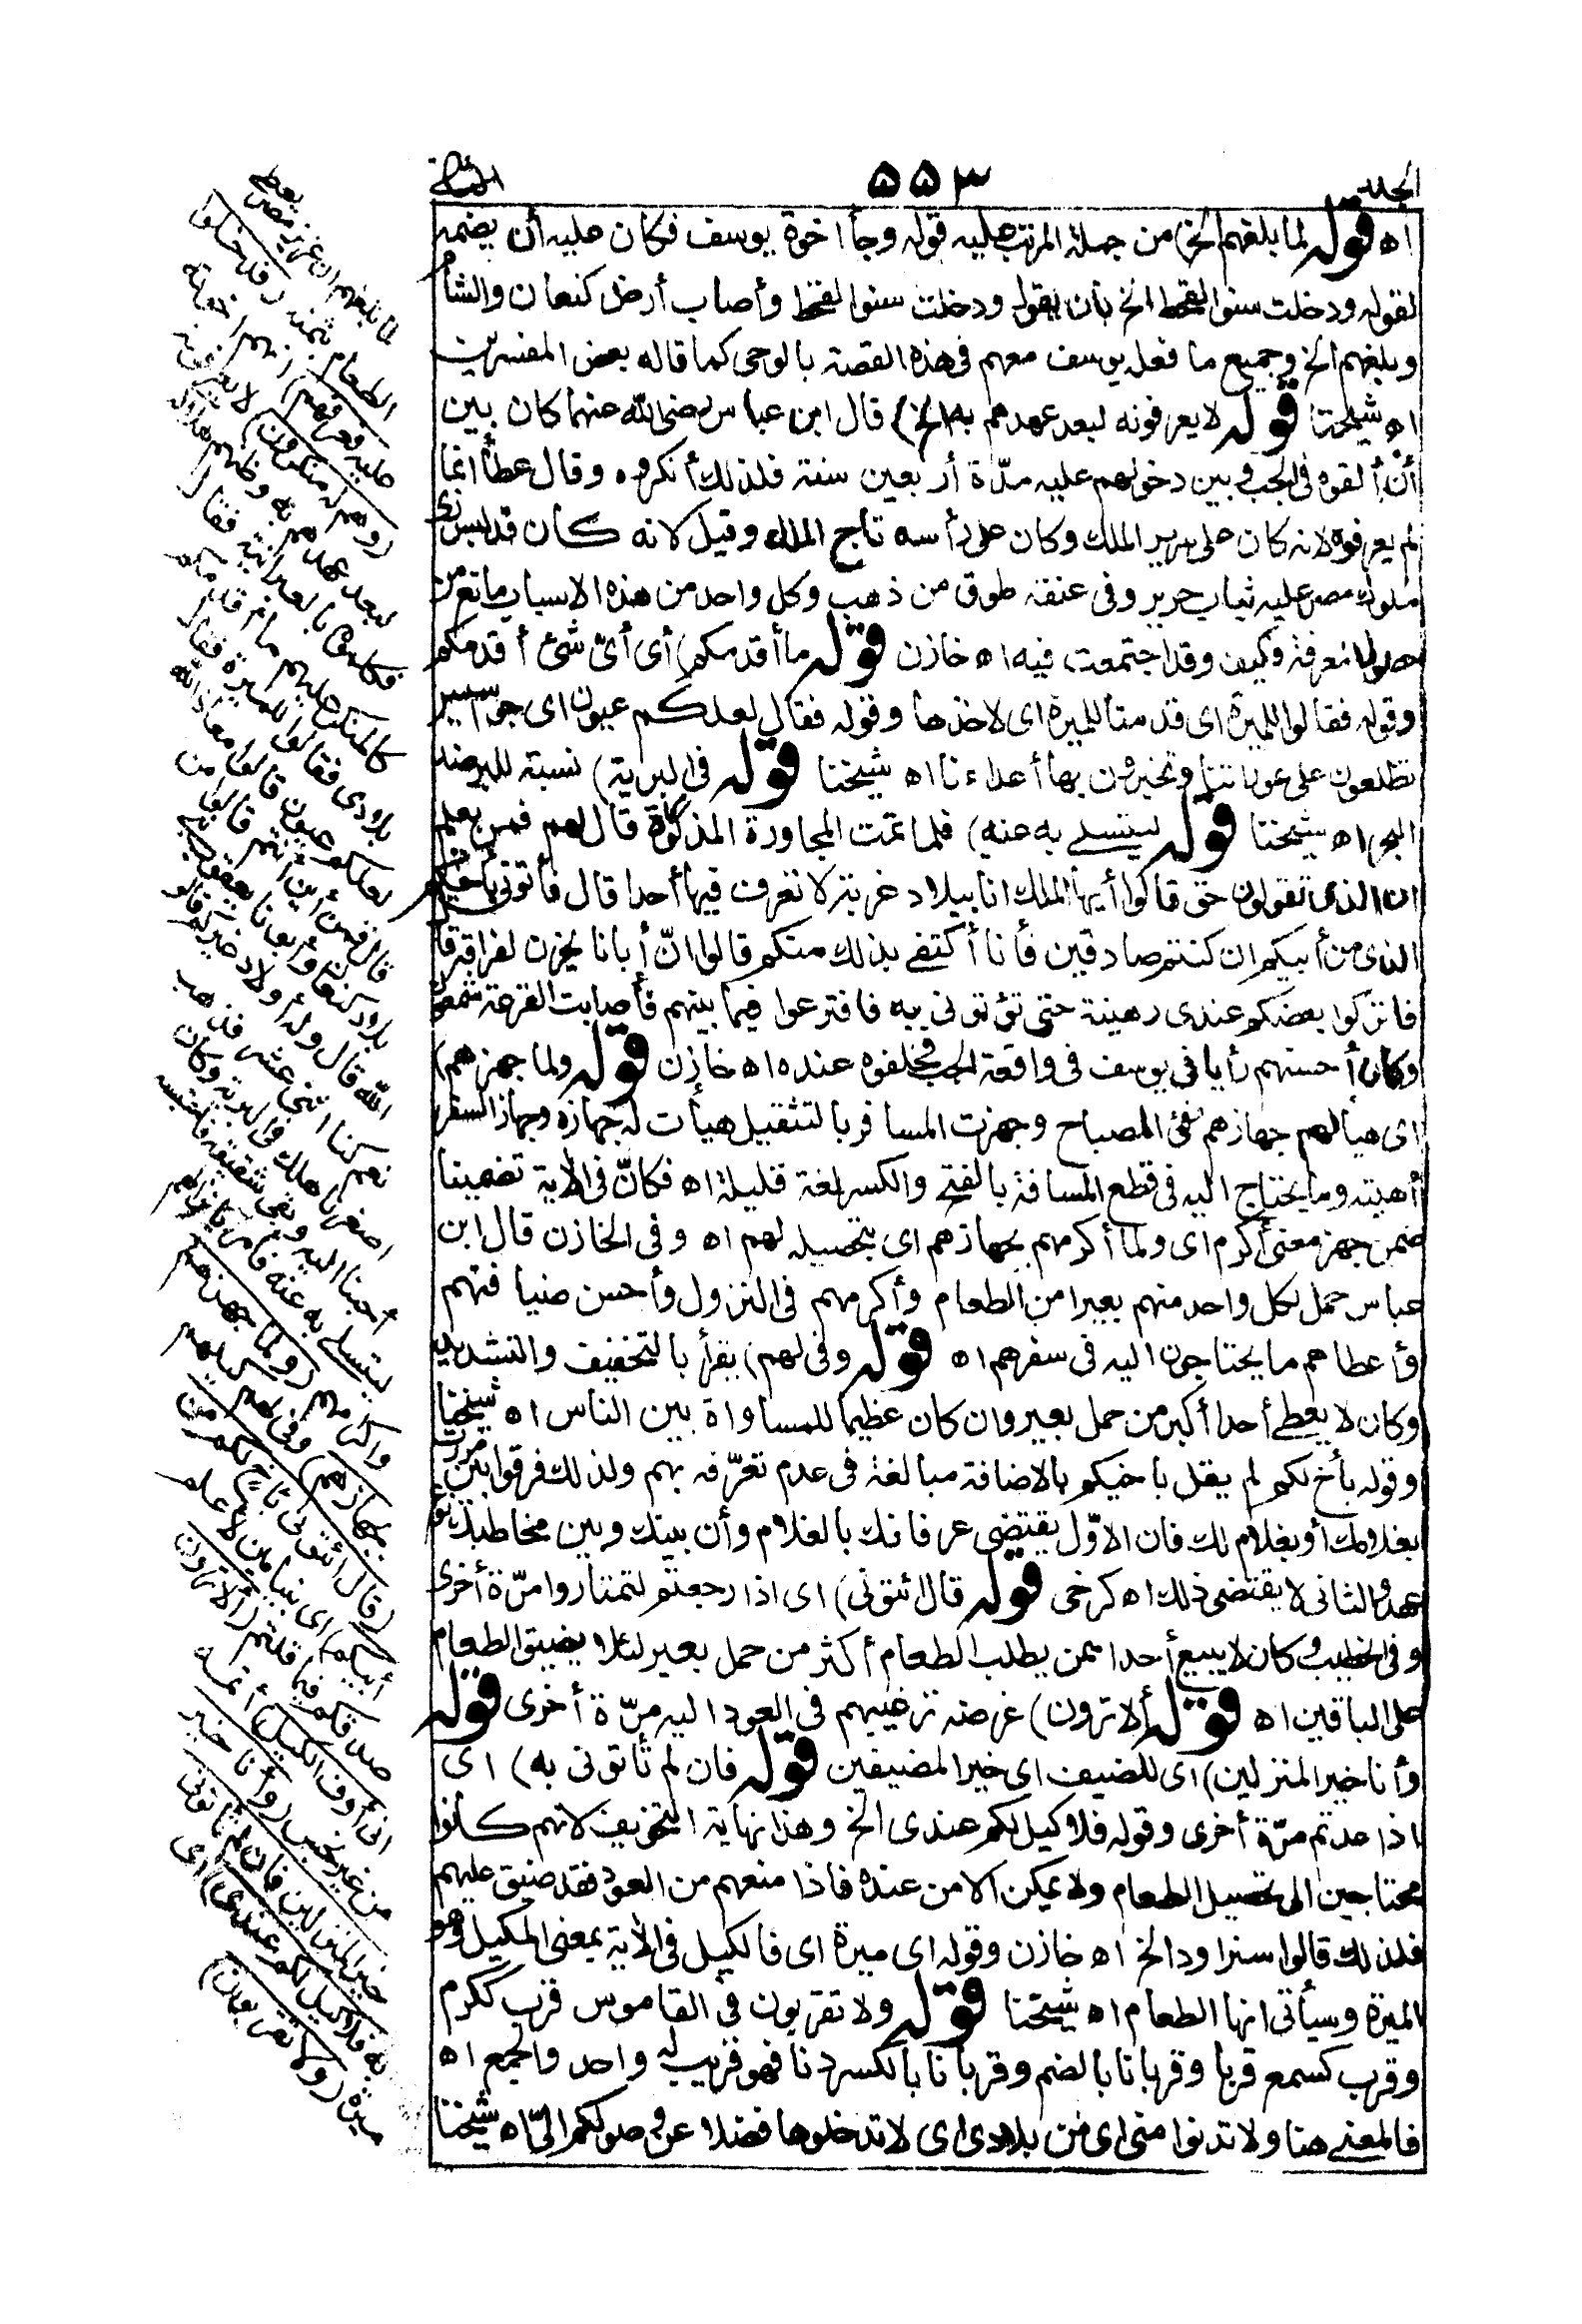 الجلد ٥٥٣ الثانى
اه قوله لما بلغهم الخ) من جملة المرتب عليه قوله وجاء اخوة يوسف فكان عليه أن يضمه
لقوله ودخلت سنوا القحط الخ بأن يقول ودخلت سنوا القحط وأصاب أرض كنعان والشأم
وبلغهم الخ وجميع ما فعل يوسف معهم فى هذه القصة بالوحى كما قاله بعض المفسرين
اه شيخنا قوله لا يعرفونه لبعد عهدهم به الخ) قال ابن عباس رضى الله عنهما كان بين
أن ألقوه فى الجب وبين دخولهم عليه مدّة أربعين سنة فلذلك أنكروه وقال عطاء انما
لم يعرفوه لانه كان على سرير الملك وكان على رأسه تاج الملك وقيل لانه كان قد لبس زى
ملوك مصر عليه ثياب حرير وفى عنقه طوق من ذهب وكل واحد من هذه الاسباب مانع من
حصول المعرفة وكيف وقد اجتمعت فيه اه خازن قوله ما أقدمكم) أى أىّ شئ أقدمكم
وقوله فقالوا للميرة اى قدمنا للميرة اى لاخذها وقوله فقال لعلكم عيون اى جواسيس
تطلعون على عوراتنا وتخبرون بها أعداءنا اه شيخنا قوله فى البرية) نسبة للبر ضد
البحر اه شيخنا قوله ليتسلى به عنه) فلما تمت المجاورة المذكورة قال لهم فمن يعلم
ان الذى تقولون حق قالوا أيها الملك انا ببلاد غربة لا نعرف فيها أحدا قال فأتونى بأخيكم
الذى من أبيكم ان كنتم صادقين فأنا أكتفى بذلك منكم قالوا انّ أبانا يحزن لفراقه قال
فاتركوا بعضكم عندى رهينة حتى تؤتونى به فاقترعوا فيما بينهم فأصابت القرعة شمعون
وكان أحسنهم رأيا فى يوسف فى واقعة الجب فخلفوه عنده اه خازن قوله ولما جهزهم)
اى هيأ لهم جهازهم ففى المصباح وجهزت المسافر بالتثقيل هيأت له جهازه وجهاز السفر
أهبته وما يحتاج اليه فى قطع المسافة بالفتح والكسر لغة قليلة اه فكانّ فى الآية تضمينا
ضمن جهز معنى أكرم اى ولما أكرمهم بجهازهم اى بتحصيله لهم اه وفى الخازن قال ابن
عباس حمل لكل واحد منهم بعيرا من الطعام وأكرمهم فى النزول وأحسن ضيافتهم
وأعطاهم ما يحتاجون اليه فى سفرهم اه قوله وفى لهم) يقرأ بالتخفيف والتشديد
وكان لا يعطى أحدا أكبر من حمل بعير وان كان عظيما للمساواة بين الناس اه شيخنا
وقوله بأخ لكم لم يقل بأخيكم بالاضافة مبالغة فى عدم تعرّفه بهم ولذلك فرقوا بين مررت
بغلامك أو بغلام لك فان الاوّل يقتضى عرفانك بالغلام وأن بينك وبين مخاطبك نوع
عهد والثانى لا يقتضى ذلك اه كرخى قوله قال ائتونى) اى اذا رجعتم لتمتاروا مرّة أخرى
وفى الخطيب وكان لا يبيع أحدا ممن يطلب الطعام أكثر من حمل بعير لئلا يضيق الطعام
على الباقين اه قوله ألا ترون) غرضه ترغيبهم فى العود اليه مرّة أخرى قوله
وأنا خير المنزلين) اى للضيف اى خير المضيفين قوله فان لم تأتونى به) اى
اذا عدتم مرّة أخرى وقوله فلا كيل لكم عندى الخ وهذا نهاية التخويف لانهم كانوا
محتاجين الى تحصيل الطعام ولا يمكن الا من عنده فاذا منعهم من العود فقد ضيق عليهم
فلذلك قالوا سنراود الخ اه خازن وقوله اى ميرة اى فالكيل فى الآية بمعنى المكيل وهو
الميرة وسيأتى انها الطعام اه شيخنا قوله ولا تقربون فى القاموس قرب ككرم
وقرب كسمع قربا وقربانا بالضم وقربانا بالكسر دنا فهو قريب له واحد والجمع اه
فالمعنى هنا ولا تدنوا منى اى من بلادى اى لا تدخلوها فضلا عن وصولكم الىّ اه شيخنا
لما بلغهم ان عزيز مصر يعطى
الطعام بثمنه (فدخلوا
عليه فعرفهم) أنهم اخوته
(وهم له منكرون) لا يعرفونه
لبعد عهدهم به وظنهم هلاكه
فكلموه بالعبرانية فقال
كالمنكر عليهم ما أقدمكم
بلادى فقالوا للميرة فقال
لعلكم عيون قالوا معاذ الله
قال فمن أين أنتم قالوا من
بلاد كنعان وأبونا يعقوب نبى
الله قال وله أولاد غيركم قالوا
نعم كنا اثنى عشر فذهب
اصغرنا هلك فى البرية وكان
أحبنا اليه وبقى شقيقه فاحتبسه
ليتسلى به عنه فأمر بانزالهم
واكرامهم (ولما جهزهم
بجهازهم) وفى لهم كيلهم
(قال ائتونى بأخ لكم من
أبيكم) اى بنيامين لاعلم
صدقكم فيما قلتم (ألا ترون
انى أوف الكيل) أتمه
من غير بخس (وأنا خير
المنزلين فان لم تأتونى
به فلا كيل لكم عندى) اى
ميرة (ولا تقربون)